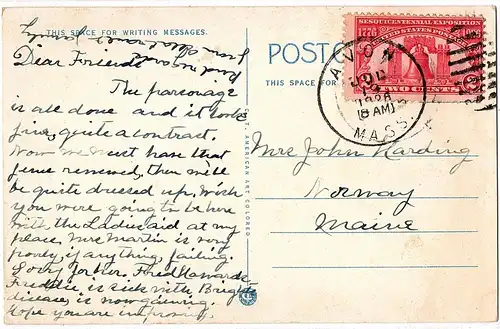 THIS SPACE FOR WRITING MESSAGES
POSTC
THIS SPACE FOR
SESQUICENTENNIAL EXPOSITION
1776
UNITED STATES POSTAGE
TWO CENTS
8 AM
MASS.
Dear Friend
The parsonage
is all done and it looks
fine, quite a contrast.
Now we must have that
fence renewed, then will
be quite dressed up. Wish
you were going to be here
with the Ladies aid at my
place. Mrs Martin is very
poorly, if anything, failing.
Sorry for her. Fred Howards
is sick with Brights
disease, is now gaining.
Hope you are improving.
Mrs John Harding
Norway
Maine
C.T. AMERICAN ART COLORED